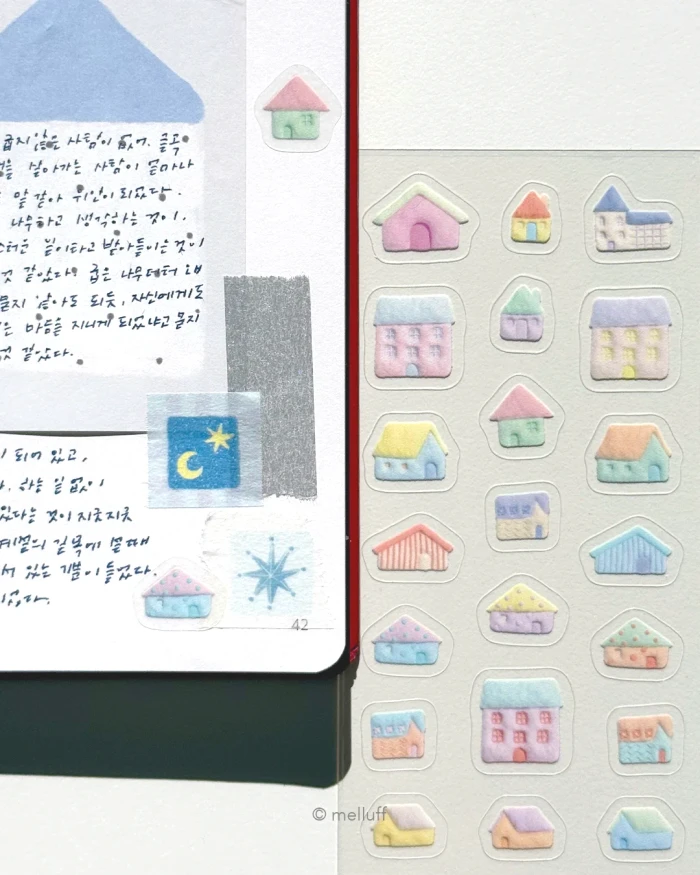 굽지 않은 사람이 없어. 굴곡
을 살아가는 사람이 얼마나
말 같아 위안이 되었다.
나무하고 생각하는 것이.
일이라고 받아들이는 것이
것 같았다. 굽은 나무더러 왜
묻지 않아도 되듯, 자신에게도
은 마음을 지니게 되었냐고 묻지
것 같았다.
되어 있고,
하는 일 없이
있다는 것이 지긋지긋
계절의 길목에 설 때
서 있는 기쁨이 들었다.
42
© melluff